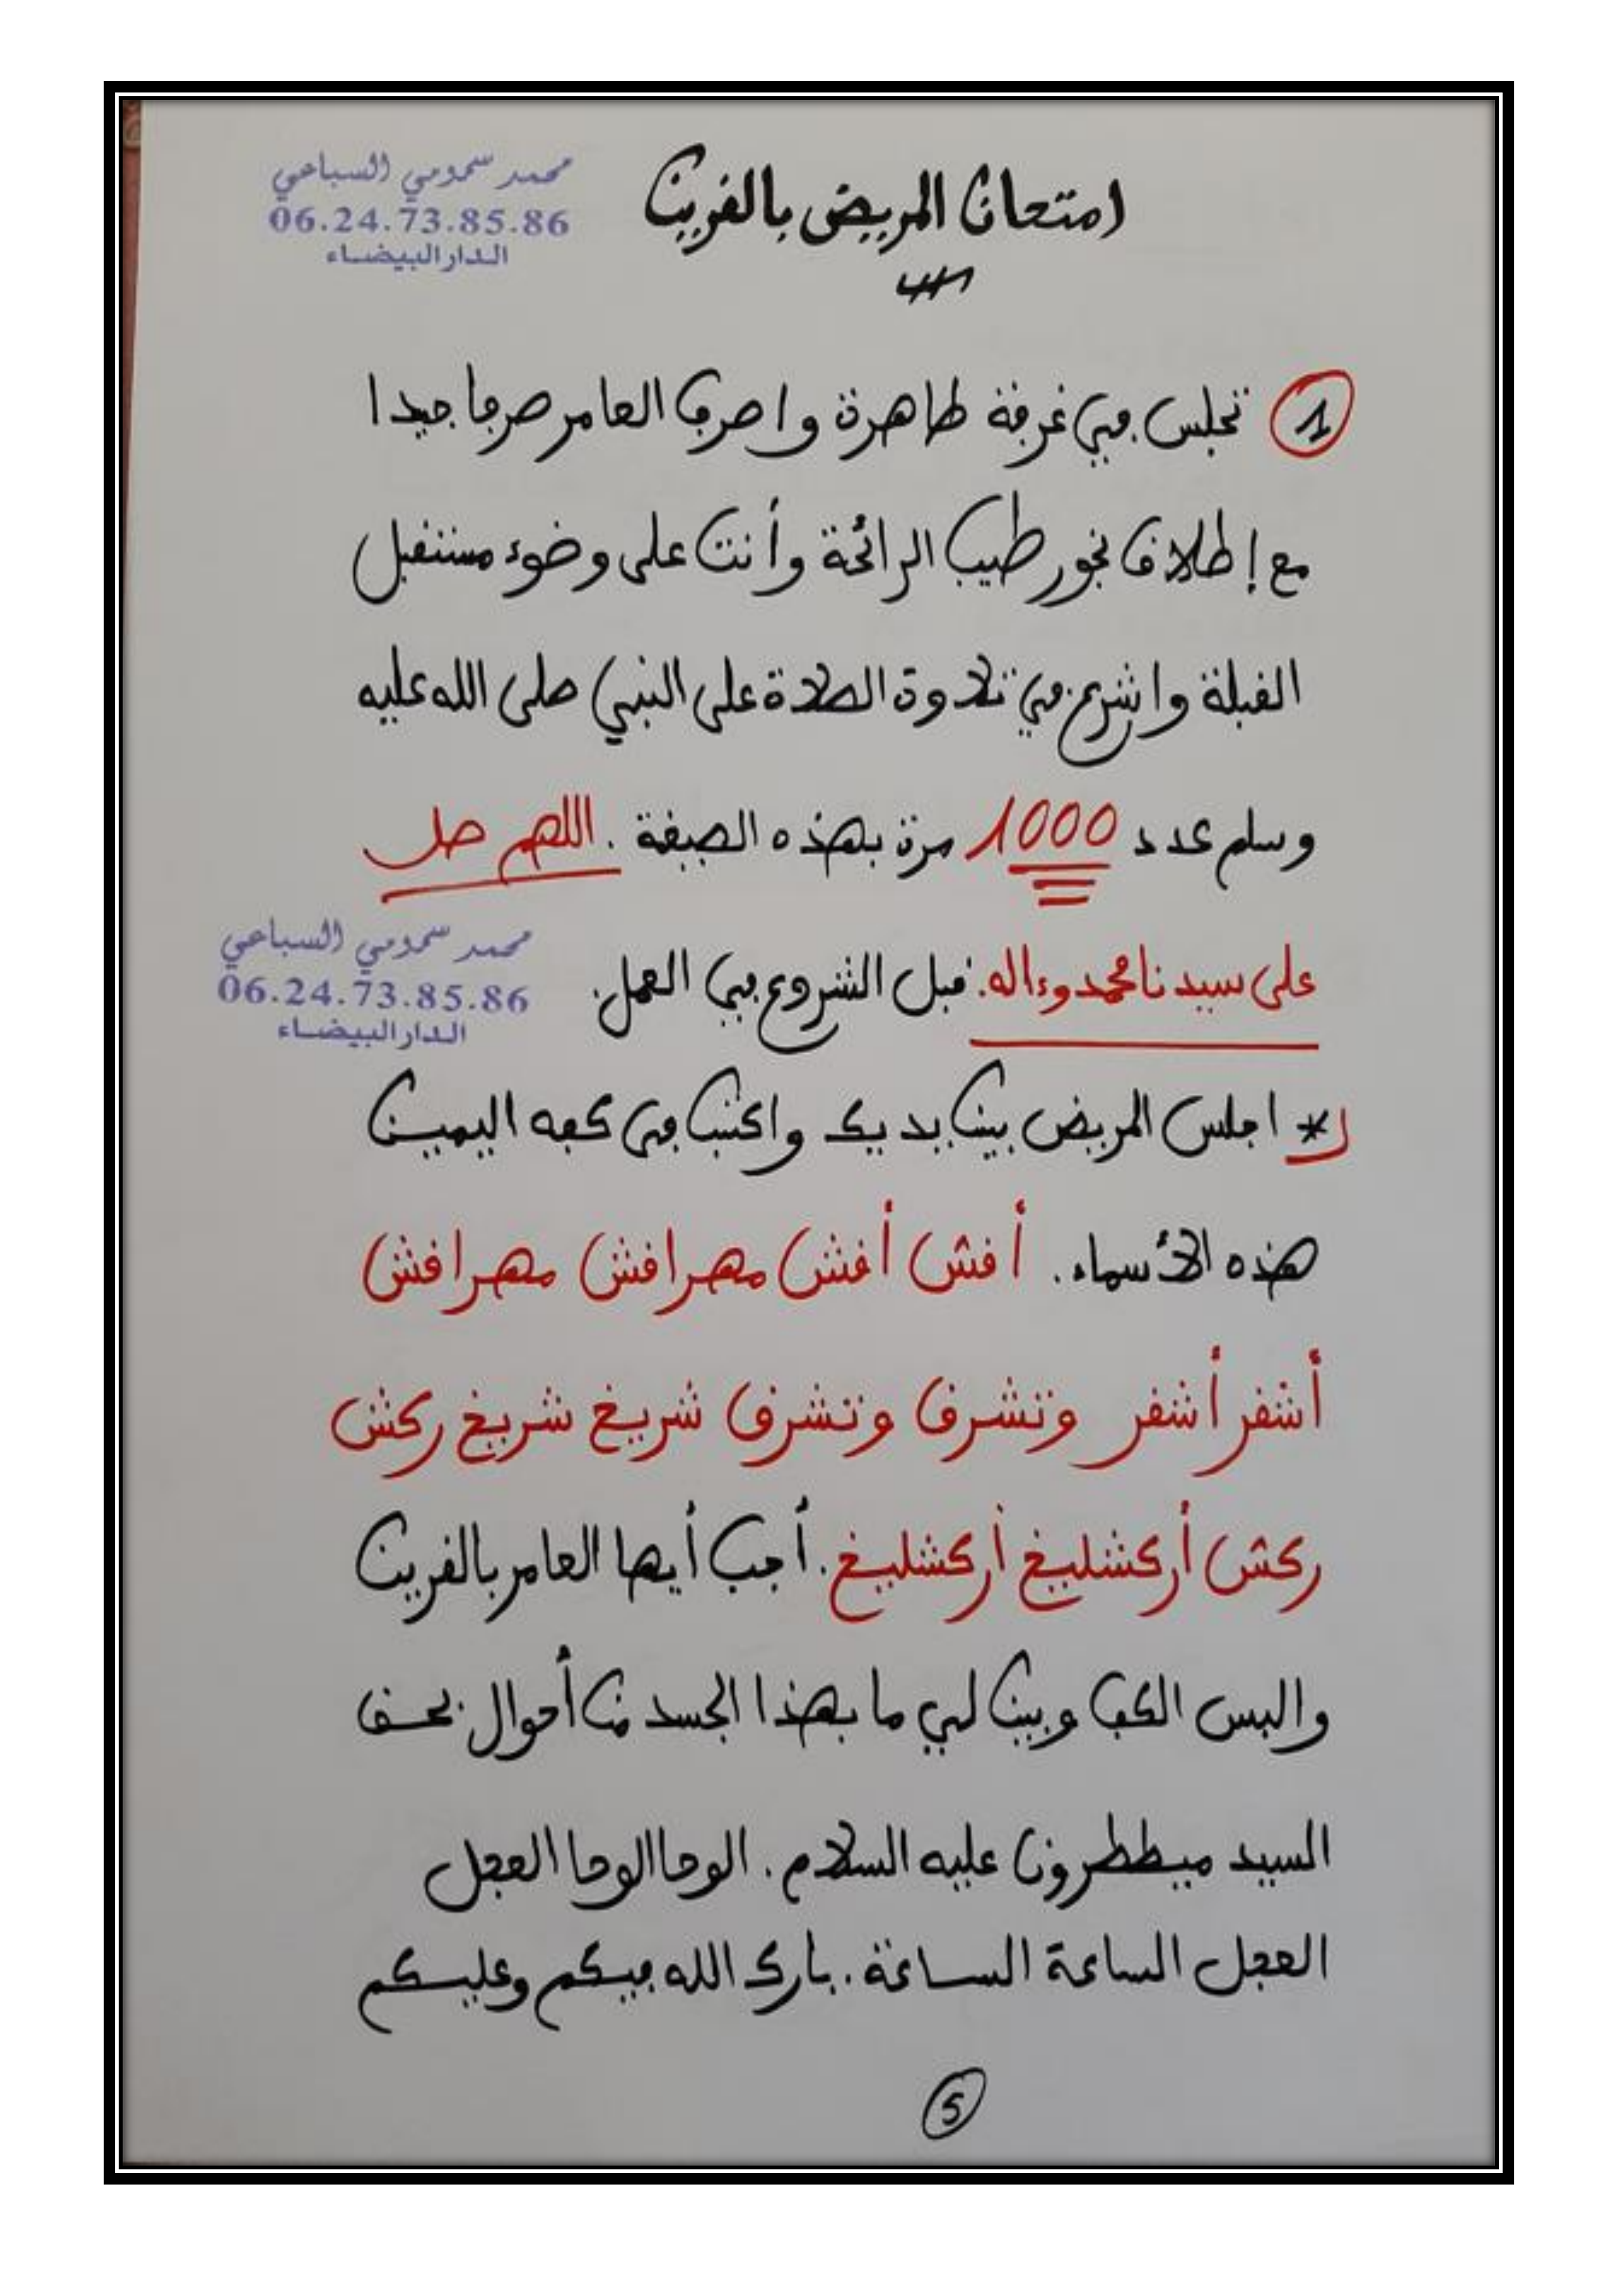 محمد سمومي السباعي
06.24.73.85.86
الدار البيضاء
امتحان المريض بالقرين
1 تجلس في غرفة طاهرة واصرف العامر صرفا جيدا
مع إطلاق بخور طيب الرائحة وأنت على وضوء مستقبل
القبلة واشرع في تلاوة الصلاة على النبي صلى الله عليه
وسلم عدد 1000 مرة بهذه الصيغة . اللهم صل
على سيدنا محمد وءاله. قبل الشروع في العمل.
محمد سمومي السباعي
06.24.73.85.86
الدار البيضاء
* اجلس المريض بين يديك واكتب في كفه اليمين
هذه الأسماء . أفش أفش مهرافش مهرافش
أشقر أشقر وتشرق وتشرق شريغ شريغ ركش
ركش أركشليغ أركشليغ . أجب أيها العامر بالقرين
والبس الكف وبين لي ما بهذا الجسد من أحوال بحق
السيد ميططرون عليه السلام . الوحا الوحا العجل
العجل الساعة الساعة . بارك الله فيكم وعليكم
5